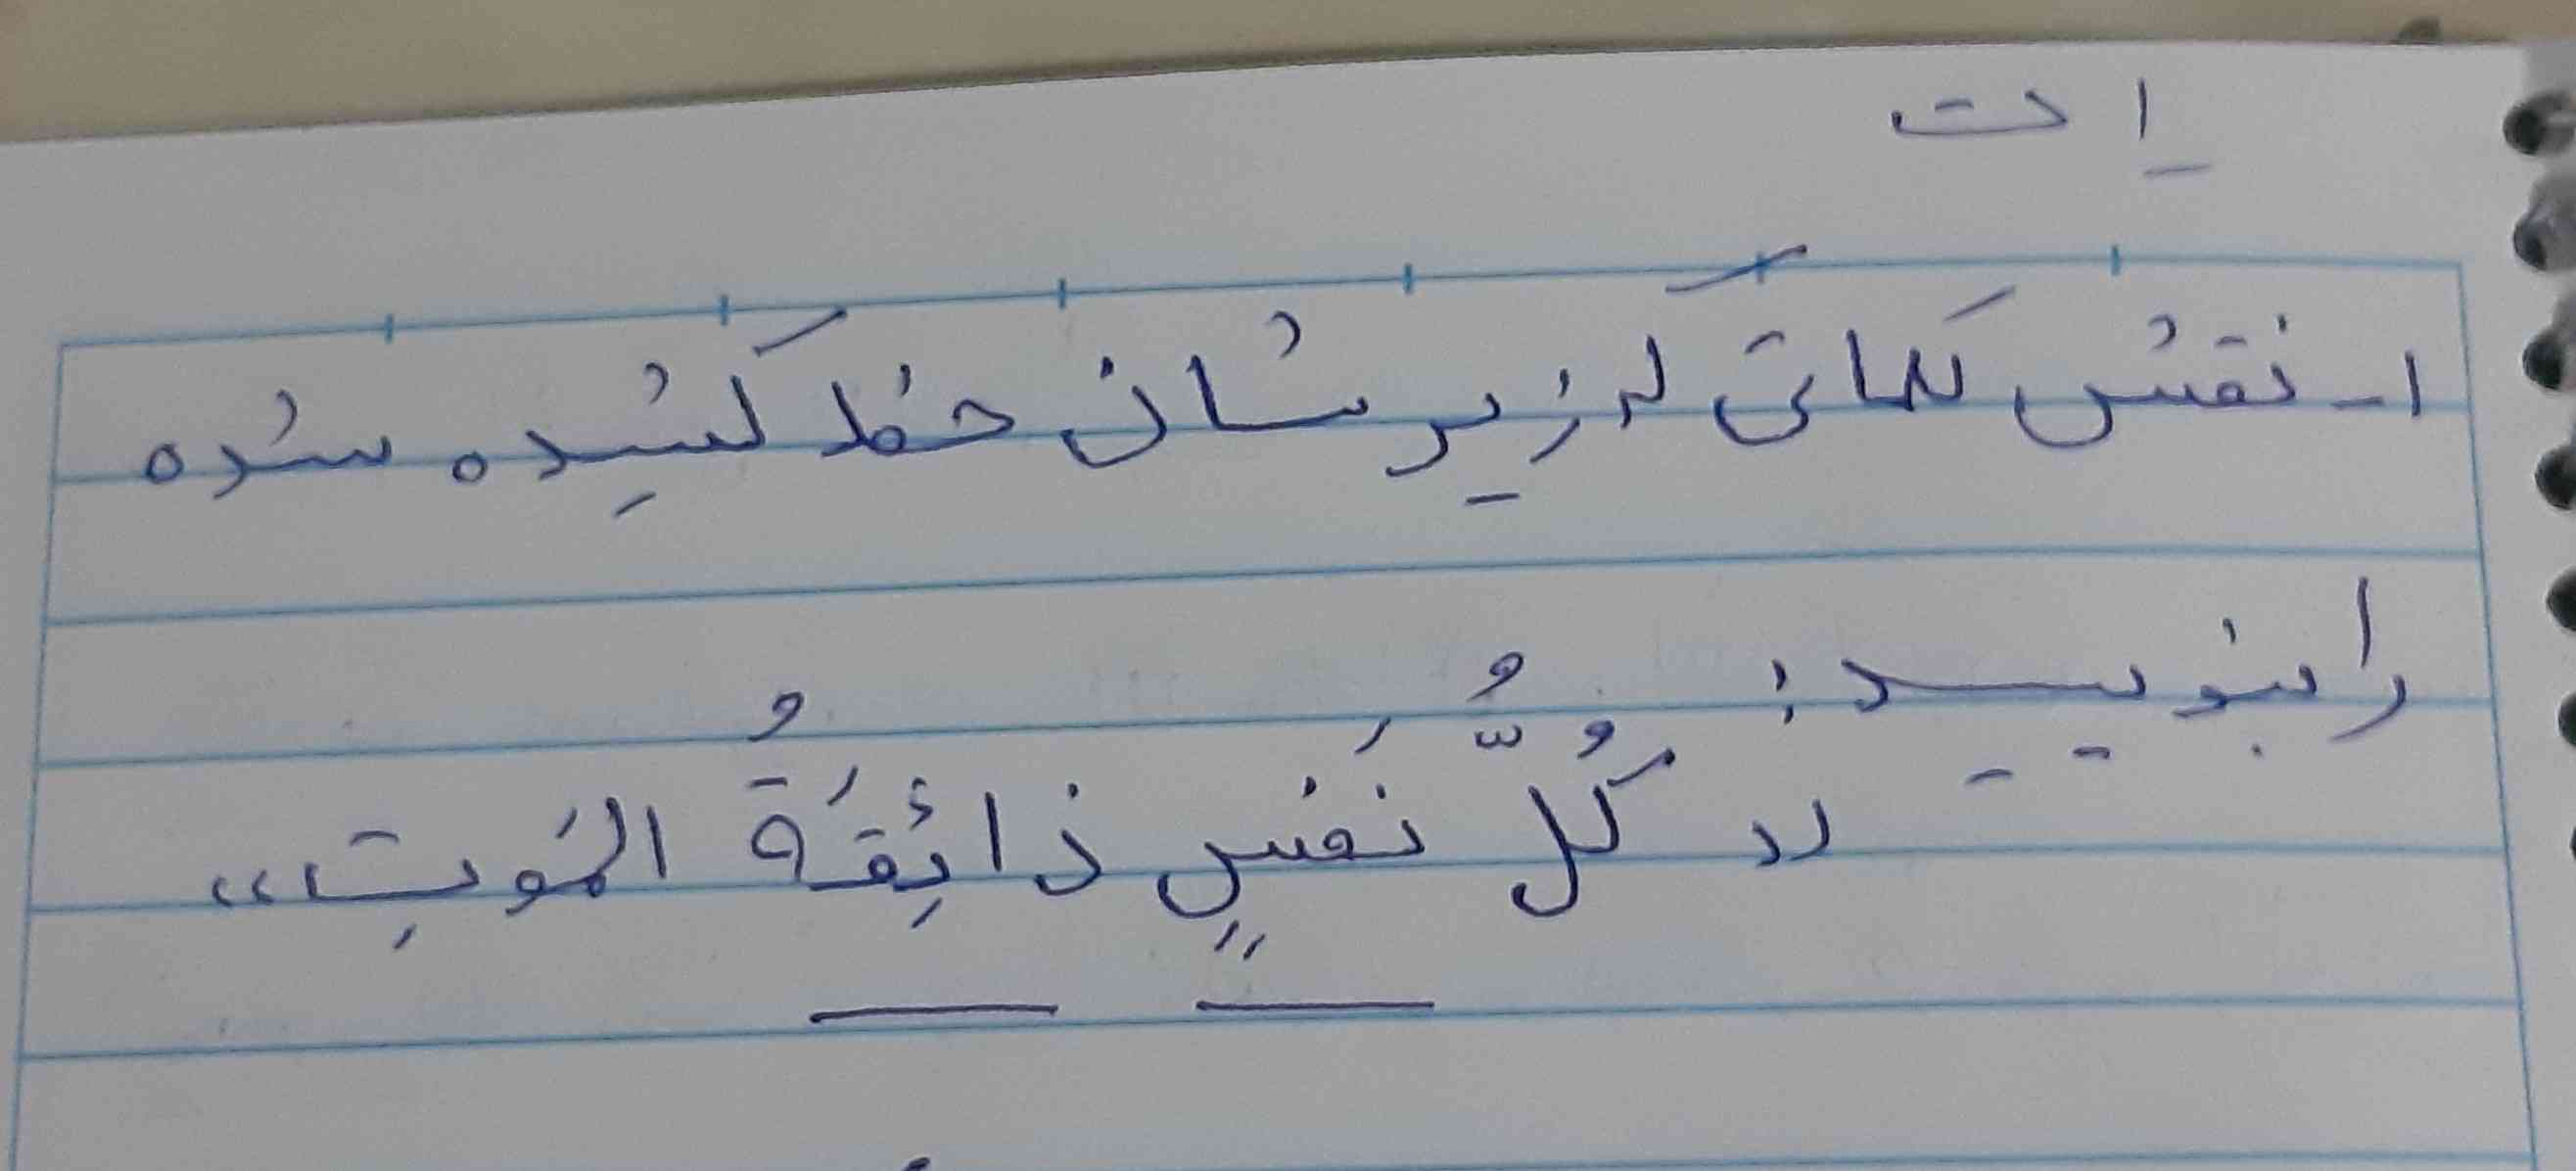 ا ت
۱- نقش کلماتی که زیرشان خط کشیده شده
را بنویسید:
«کُلُّ نَفسٍ ذائِقَةُ المَوتِ»